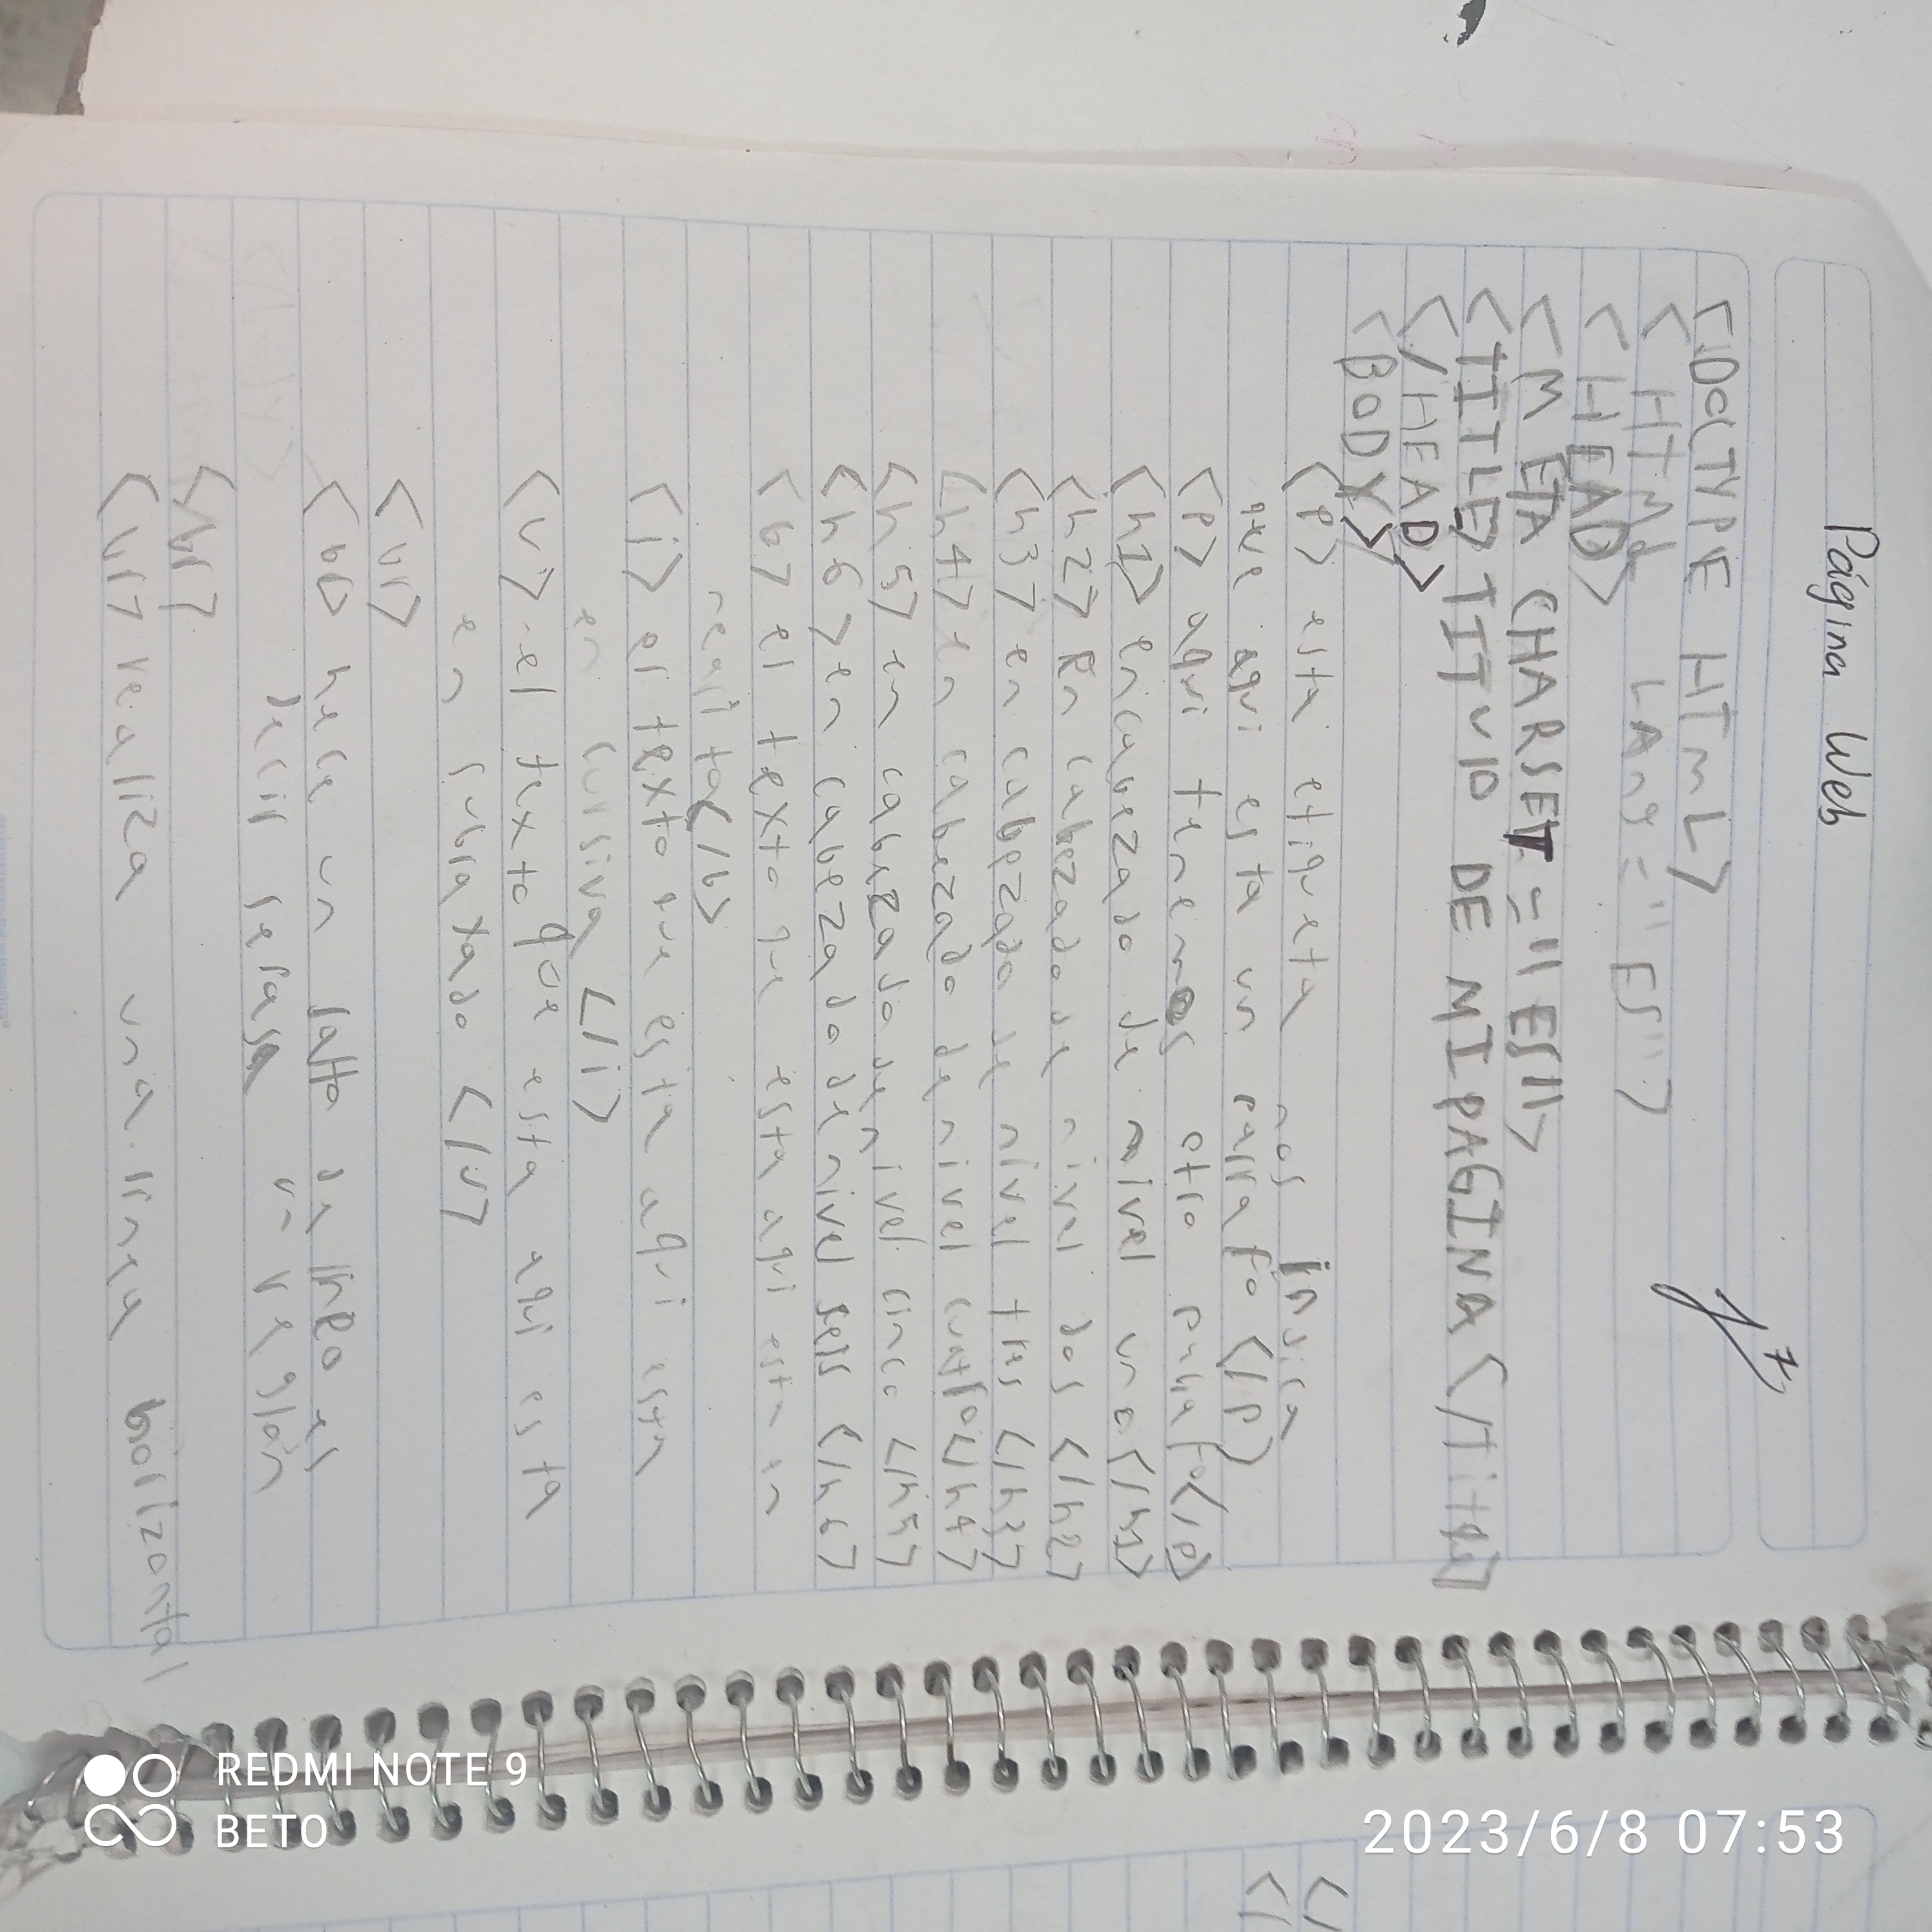 Página Web
<DOCTYPE HTML>
<HTML LAng="ES">
<HEAD>
<META CHARSET="ES">
<TITLE> TITULO DE MI PAGINA </Title>
</HEAD>
<BODY>
<P> esta etiqueta nos indica
que aqui esta un parrafo </p>
<P> aqui tenemos otro parrafo</p>
<h1> encabezado de nivel uno</h1>
<h2> En cabezado de nivel dos </h2>
<h3> en cabezado de nivel tres </h3>
<h4> en cabezado de nivel cuatro</h4>
<h5> en cabezado de nivel cinco </h5>
<h6> en cabezado de nivel seis </h6>
<b> el texto que esta aqui esta en
negrita</b>
<i> el texto que esta aqui esta
en cursiva </i>
<u> el texto que esta aqui esta
en subrayado </u>
<br>
<br> hace un salto de linea es
decir se pasa un renglón
<hr>
<hr> realiza una linea horizontal
REDMI NOTE 9
BETO
2023/6/8 07:53